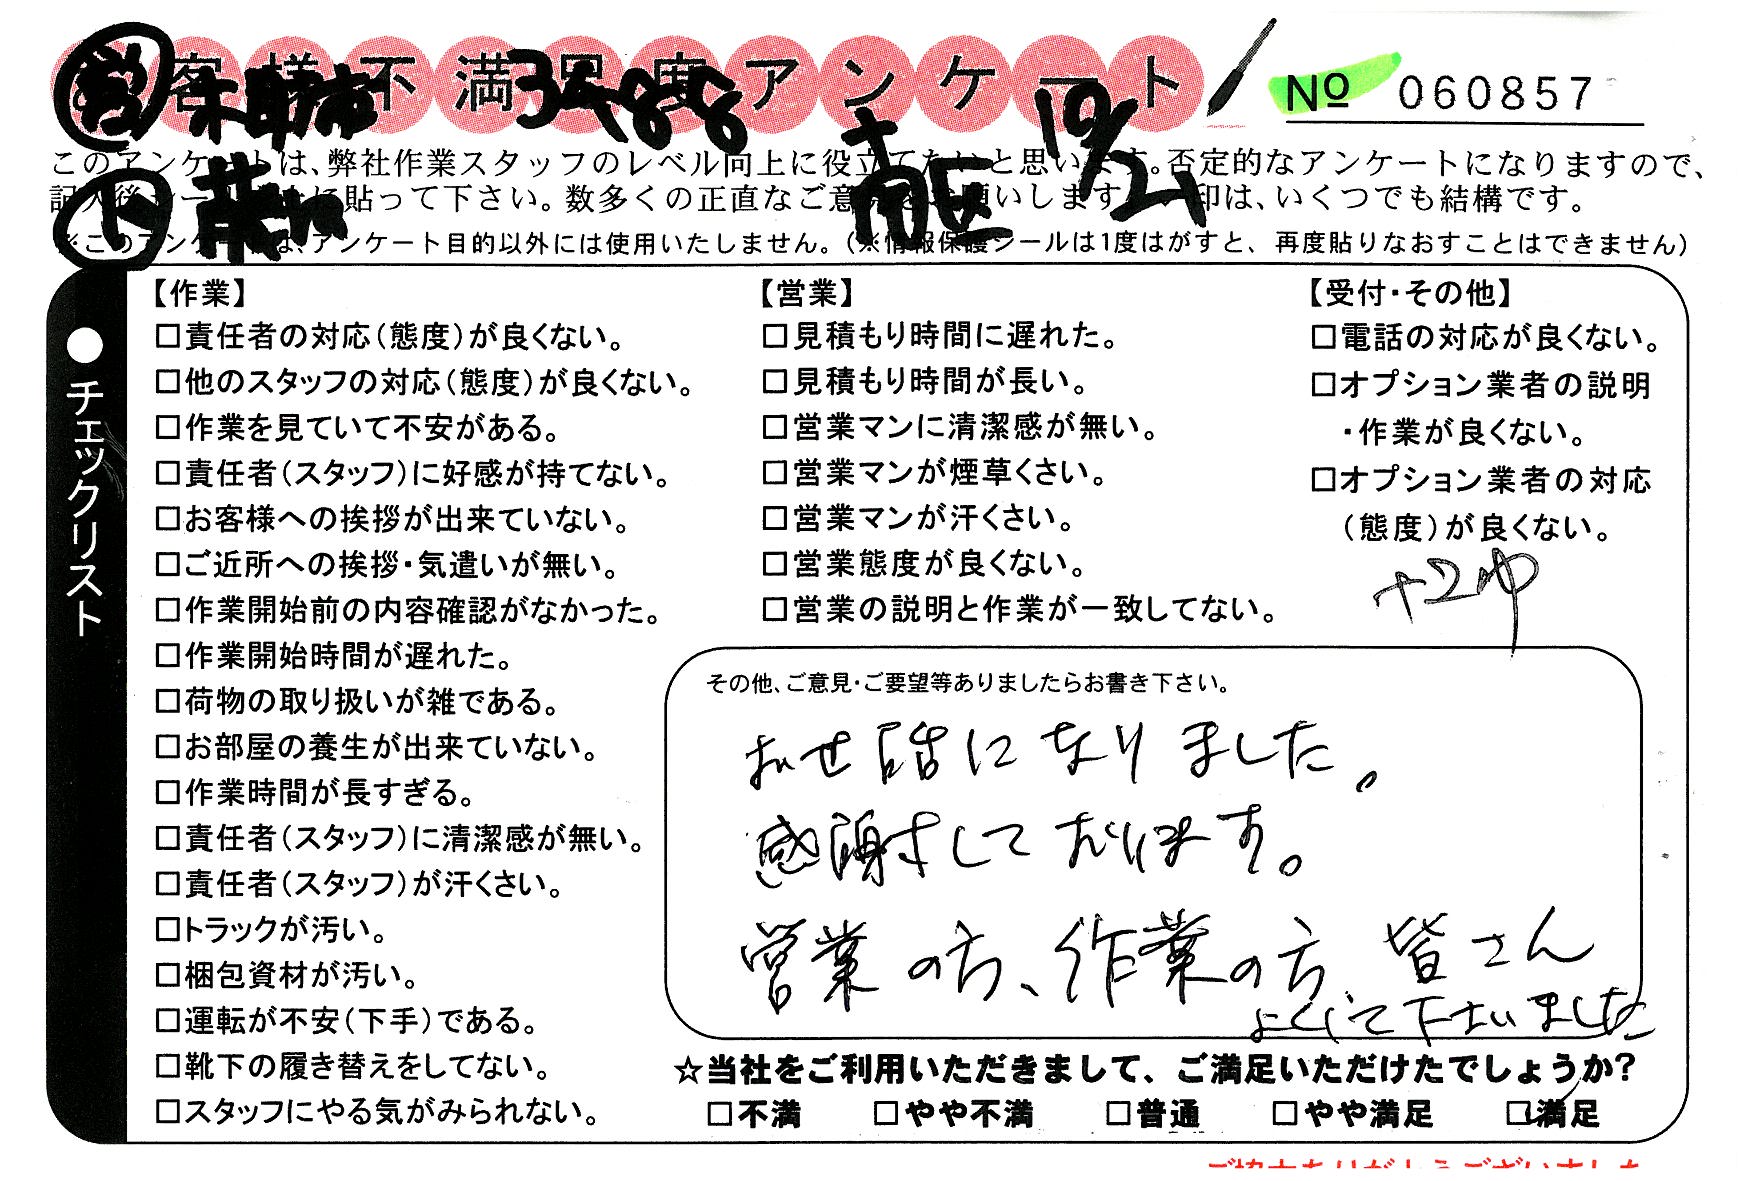 お客様不満足度アンケート
No 060857
10/21
南区
このアンケートは、弊社作業スタッフのレベル向上に役立てたいと思います。否定的なアンケートになりますので、
に貼って下さい。数多くの正直なご意見をお願いします。印は、いくつでも結構です。
※このアンケートは、アンケート目的以外には使用いたしません。(※情報保護シールは1度はがすと、再度貼りなおすことはできません)
●チェックリスト
【作業】
□責任者の対応(態度)が良くない。
□他のスタッフの対応(態度)が良くない。
□作業を見ていて不安がある。
□責任者(スタッフ)に好感が持てない。
□お客様への挨拶が出来ていない。
□ご近所への挨拶・気遣いが無い。
□作業開始前の内容確認がなかった。
□作業開始時間が遅れた。
□荷物の取り扱いが雑である。
□お部屋の養生が出来ていない。
□作業時間が長すぎる。
□責任者(スタッフ)に清潔感が無い。
□責任者(スタッフ)が汗くさい。
□トラックが汚い。
□梱包資材が汚い。
□運転が不安(下手)である。
□靴下の履き替えをしてない。
□スタッフにやる気がみられない。
【営業】
□見積もり時間に遅れた。
□見積もり時間が長い。
□営業マンに清潔感が無い。
□営業マンが煙草くさい。
□営業マンが汗くさい。
□営業態度が良くない。
□営業の説明と作業が一致してない。
【受付・その他】
□電話の対応が良くない。
□オプション業者の説明
・作業が良くない。
□オプション業者の対応
(態度)が良くない。
その他、ご意見・ご要望等ありましたらお書き下さい。
お世話になりました。
感謝しております。
営業の方、作業の方 皆さん
よくして下さいました
☆当社をご利用いただきまして、ご満足いただけたでしょうか?
□不満 □やや不満 □普通 □やや満足 □満足
ご協力ありがとうございました